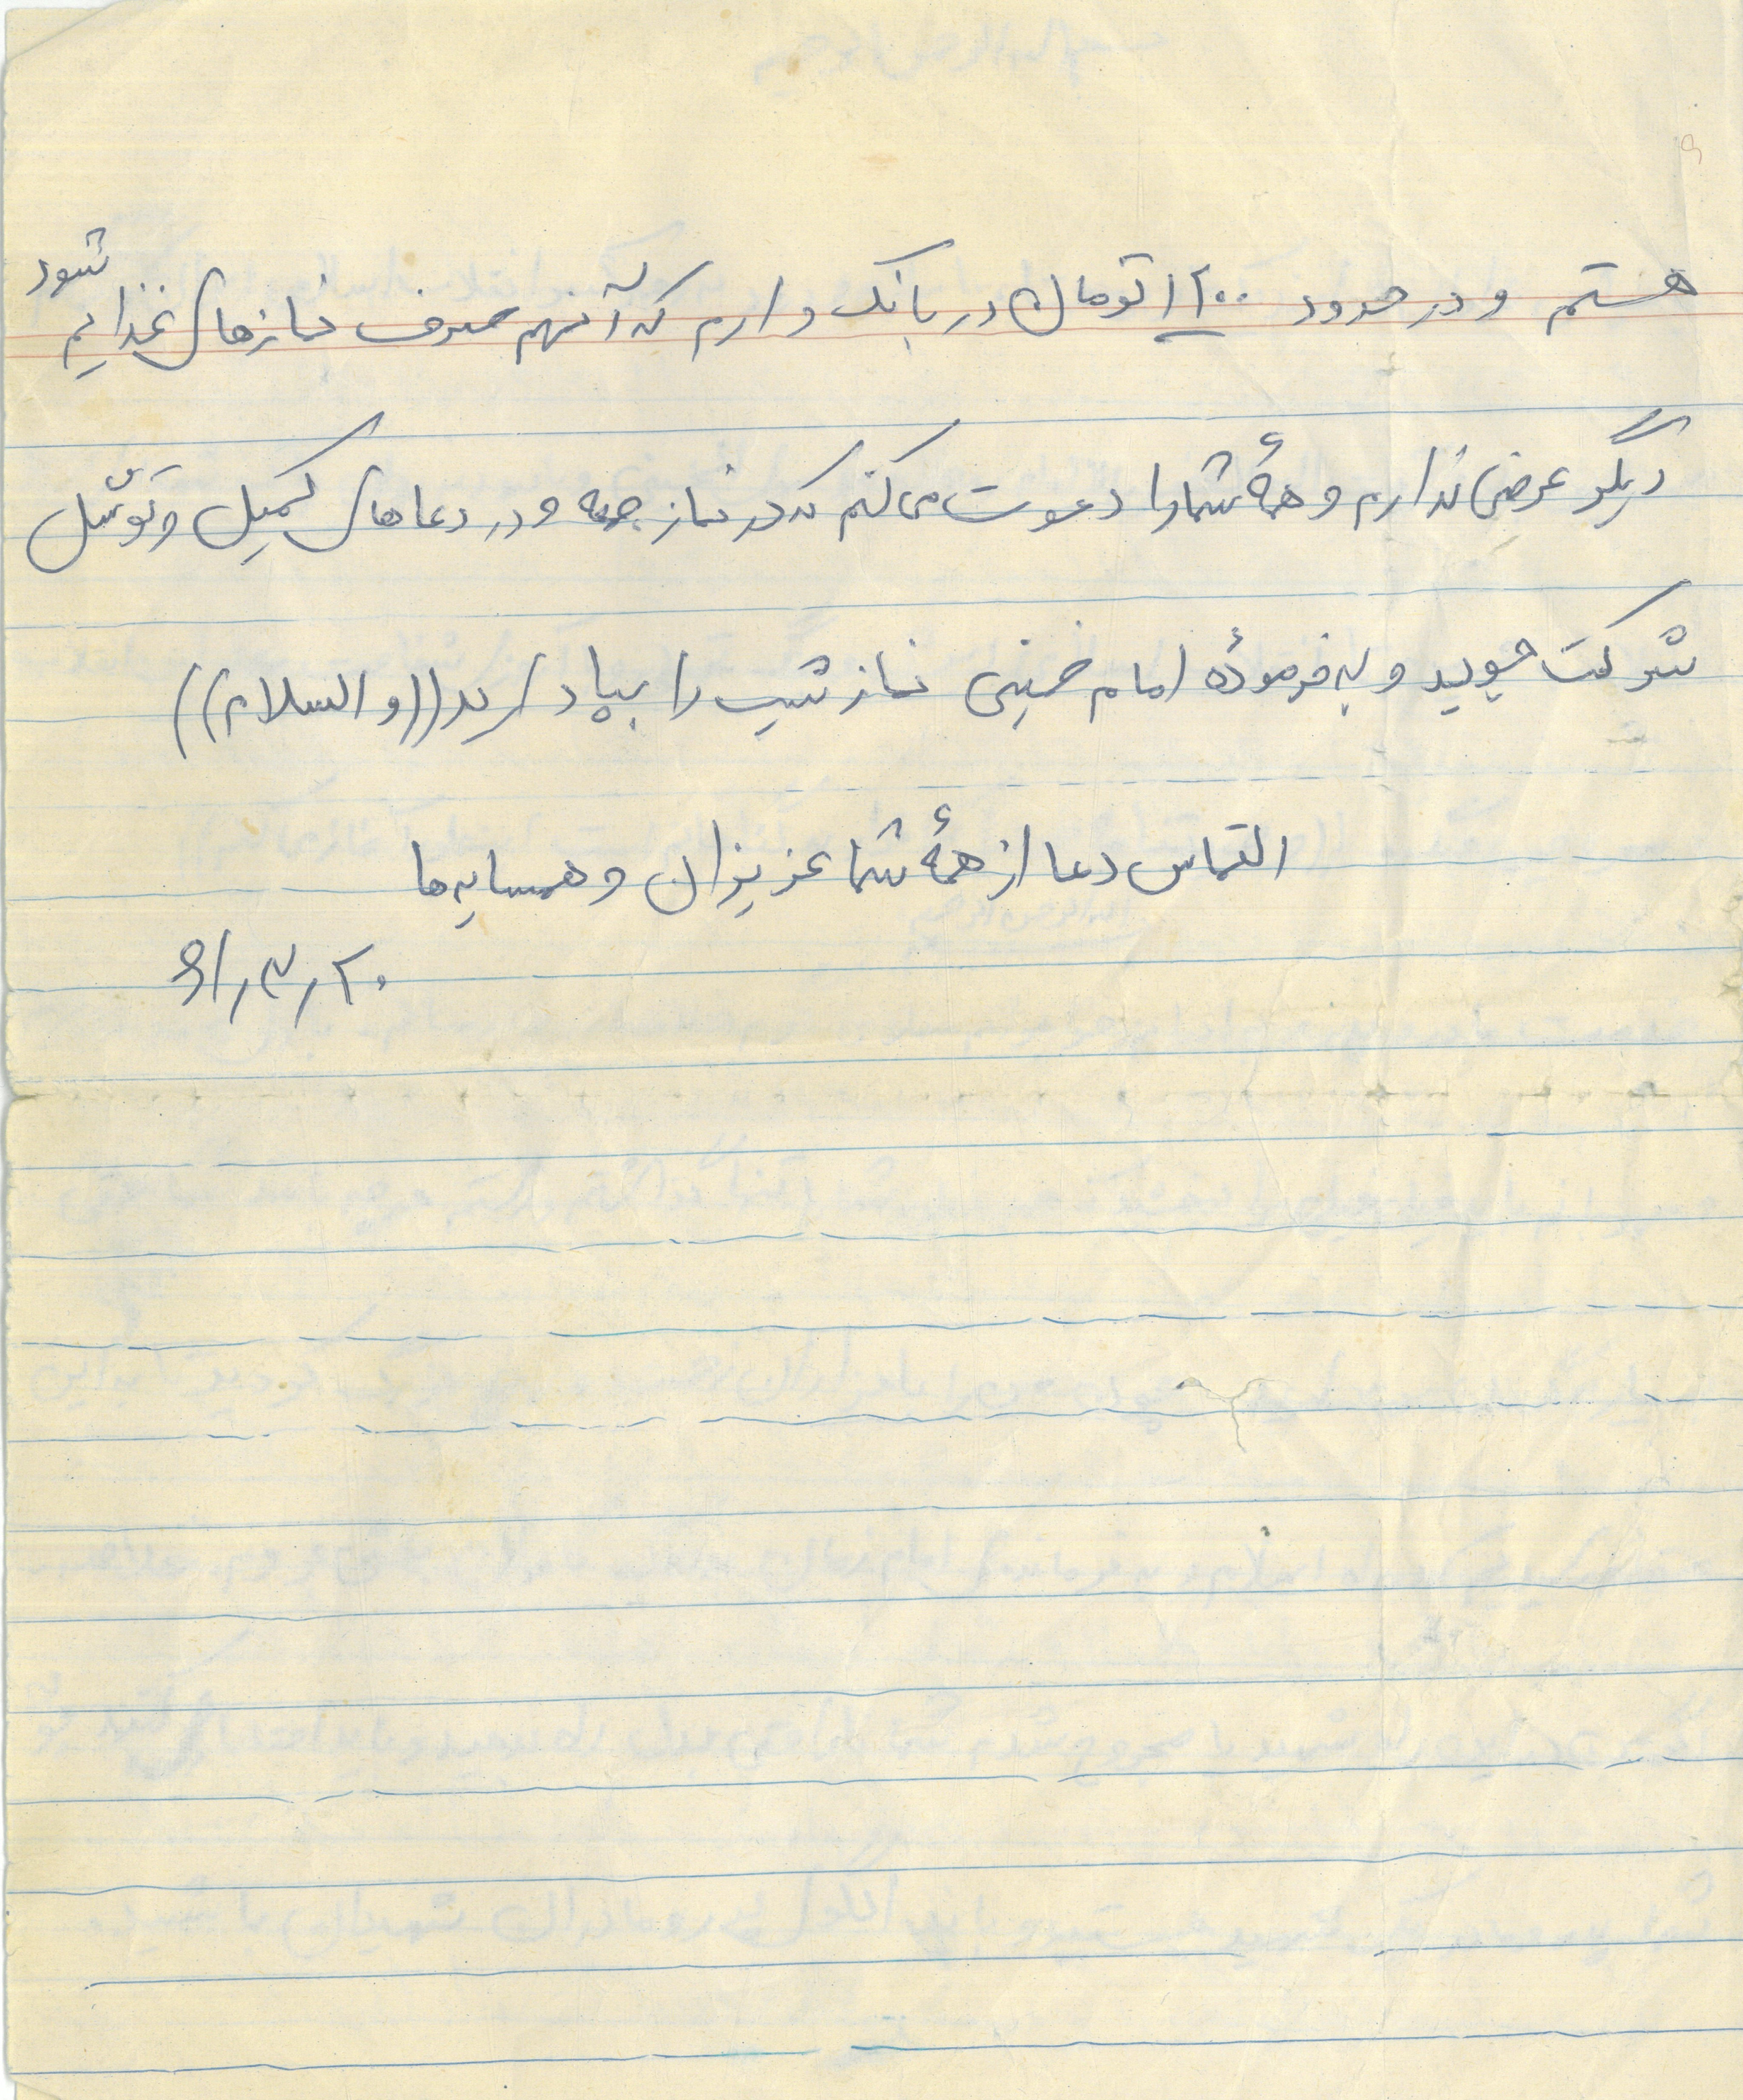 هستم و در حدود ۱۲۰۰ تومان در بانک دارم که آنهم صرف نمازهای غذایم شود
دیگر عرضی ندارم و همهٔ شما را دعوت می کنم که در نماز جمعه و در دعاهای کمیل و توسّل
شرکت جوید و به فرمودهٔ امام خمینی نماز شب را بپاد ((والسلام))
التماس دعا از همهٔ شما عزیزان و همسایه ها
۶۱٫۳٫۲۰